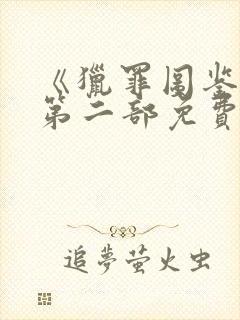 《獵罪圖鉴
第二部免費
追夢萤火虫